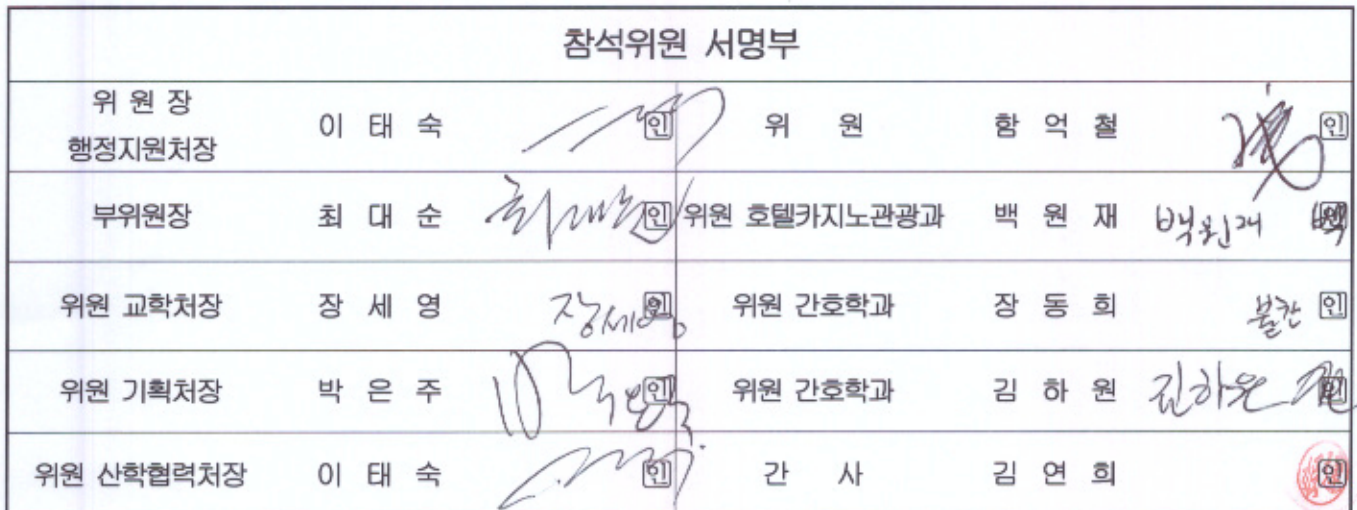 참석위원 서명부
위 원 장
행정지원처장 이 태 숙 인 위 원 함 억 철 인
부위원장 최 대 순 인 위원 호텔카지노관광과 백 원 재 백원재
위원 교학처장 장 세 영 장세영 인 위원 간호학과 장 동 희 불참 인
위원 기획처장 박 은 주 인 위원 간호학과 김 하 원 김하원
위원 산학협력처장 이 태 숙 인 간 사 김 연 희 인